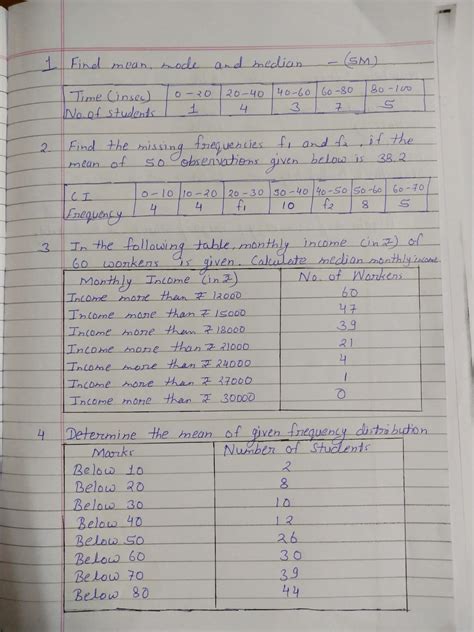 1 Find mean, mode and median - (5M)
Time (in sec) 0-20 20-40 40-60 60-80 80-100
No. of students 1 4 3 7 5
2. Find the missing frequencies f1 and f2, if the
mean of 50 observations given below is 38.2
CI 0-10 10-20 20-30 30-40 40-50 50-60 60-70
Frequency 4 4 f1 10 f2 8 5
3 In the following table, monthly income (in ₹) of
60 workers is given. Calculate median monthly income.
Monthly Income (in ₹) No. of Workers
Income more than ₹ 12000 60
Income more than ₹ 15000 47
Income more than ₹ 18000 39
Income more than ₹ 21000 21
Income more than ₹ 24000 4
Income more than ₹ 27000 1
Income more than ₹ 30000 0
4 Determine the mean of given frequency distribution
Marks Number of Students
Below 10 2
Below 20 8
Below 30 10
Below 40 12
Below 50 26
Below 60 30
Below 70 39
Below 80 44